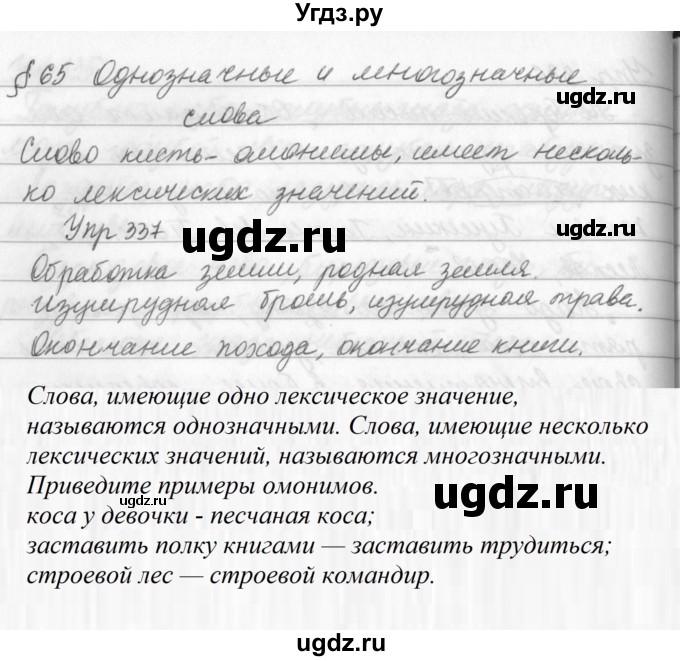 Угдз.ру
§ 65 Однозначные и многозначные
ugdz.ru
слова
ugdz.ru
Слово кисть - омонимы, имеет несколь-
ко лексических значений.
Упр 337
ugdz.ru
ugdz.ru
Обработка земли, родная земля.
Изумрудная брошь, изумрудная трава.
Окончание похода, окончание книги.
Слова, имеющие одно лексическое значение,
называются однозначными. Слова, имеющие несколько
лексических значений, называются многозначными.
Приведите примеры омонимов.
ugdz.ru
ugdz.ru
коса у девочки - песчаная коса;
заставить полку книгами — заставить трудиться;
строевой лес — строевой командир.
ugdz.ru
ugdz.ru